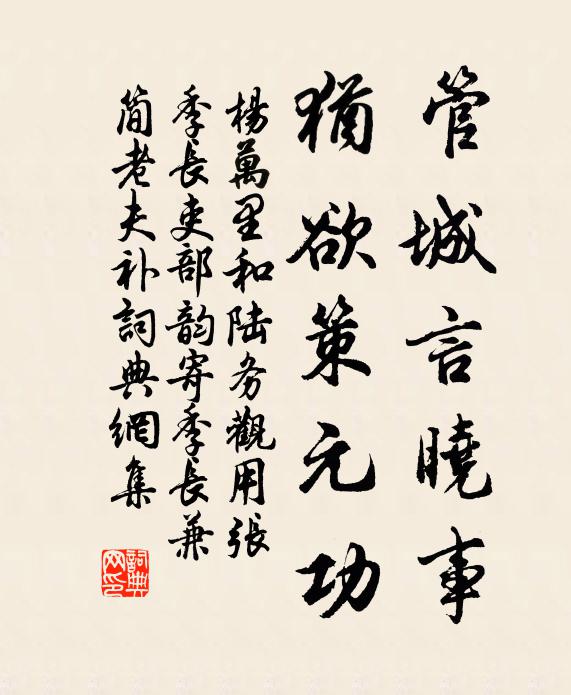 管城言曉事
猶欲策元功
楊萬里和陸务觀用張
季長吏部韵寄季長兼
简老夫补詞典網集
詞典
网印